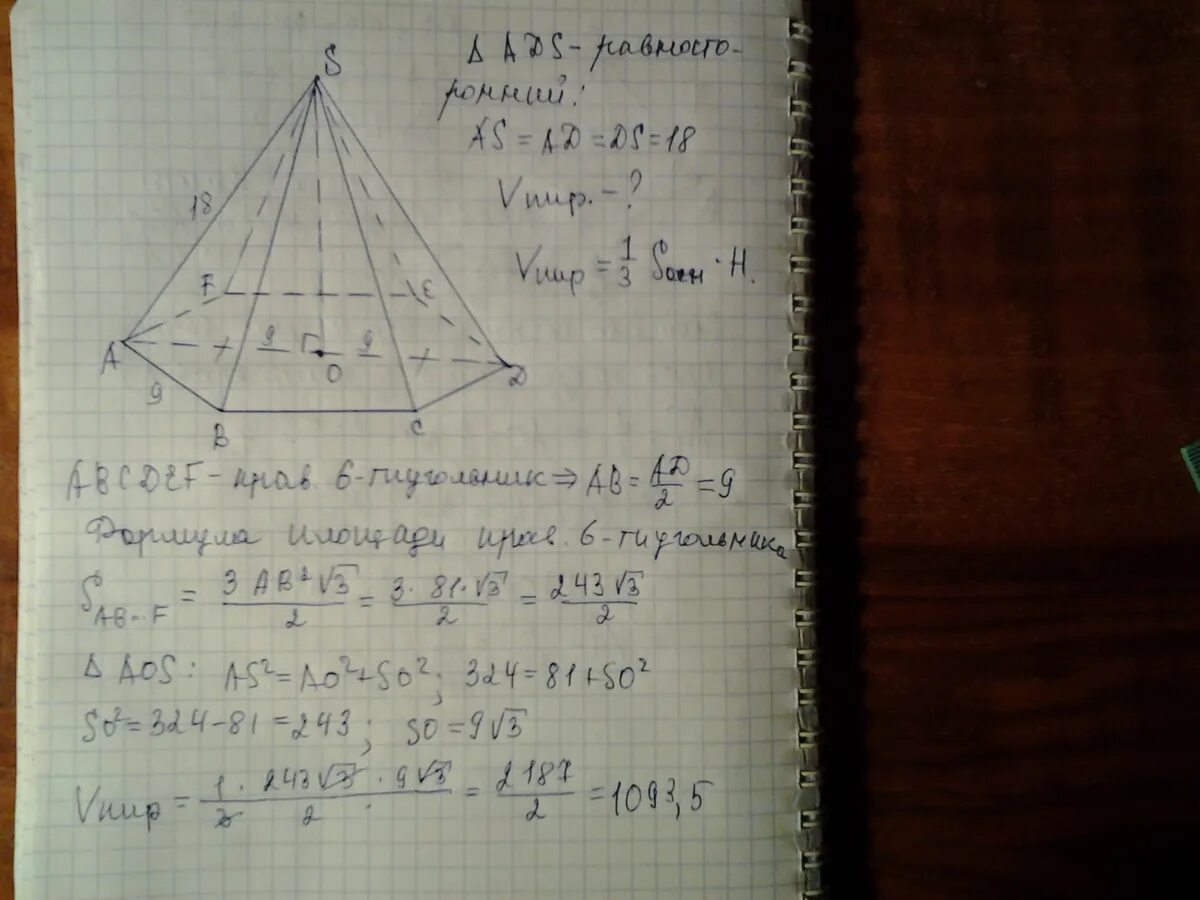 S
Δ ADS - равносто-
ронний:
AS = AD = DS = 18
Vпир. - ?
Vпир = 1/3 Sосн · H.
18
F
E
A
9
9
O
D
9
B
C
ABCDEF - прав. 6-тиугольник ⇒ AB = AD/2 = 9
Формула площади прав. 6-тиугольника
S_AB...F = 3 AB² √3 / 2 = 3 · 81 · √3 / 2 = 243 √3 / 2
Δ AOS: AS² = AO² + SO²; 324 = 81 + SO²
SO² = 324 - 81 = 243; SO = 9 √3
Vпир = 1 · 243 √3 · 9 √3 / 3 · 2 = 2187 / 2 = 1093,5